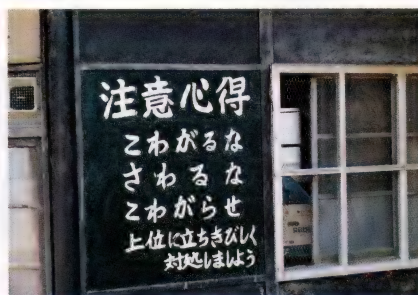 注意心得
こわがるな
さわるな
こわがらせ
上位に立ちきびしく
対処しましよう